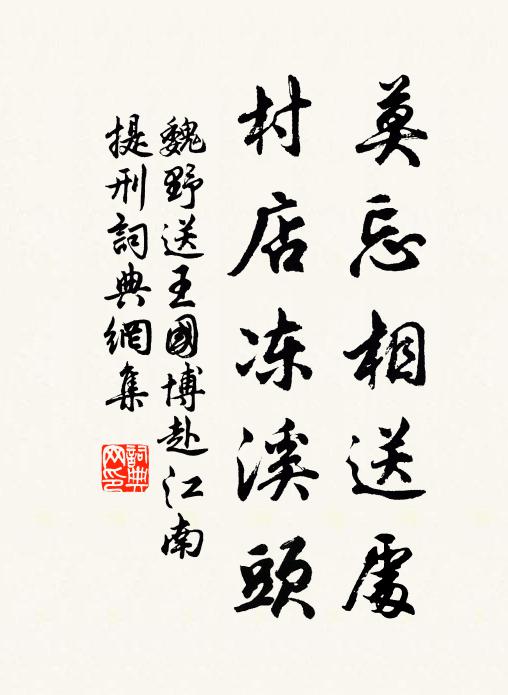 莫忘相送處
村店冻溪頭
魏野送王國博赴江南
提刑詞典網集
詞典网印